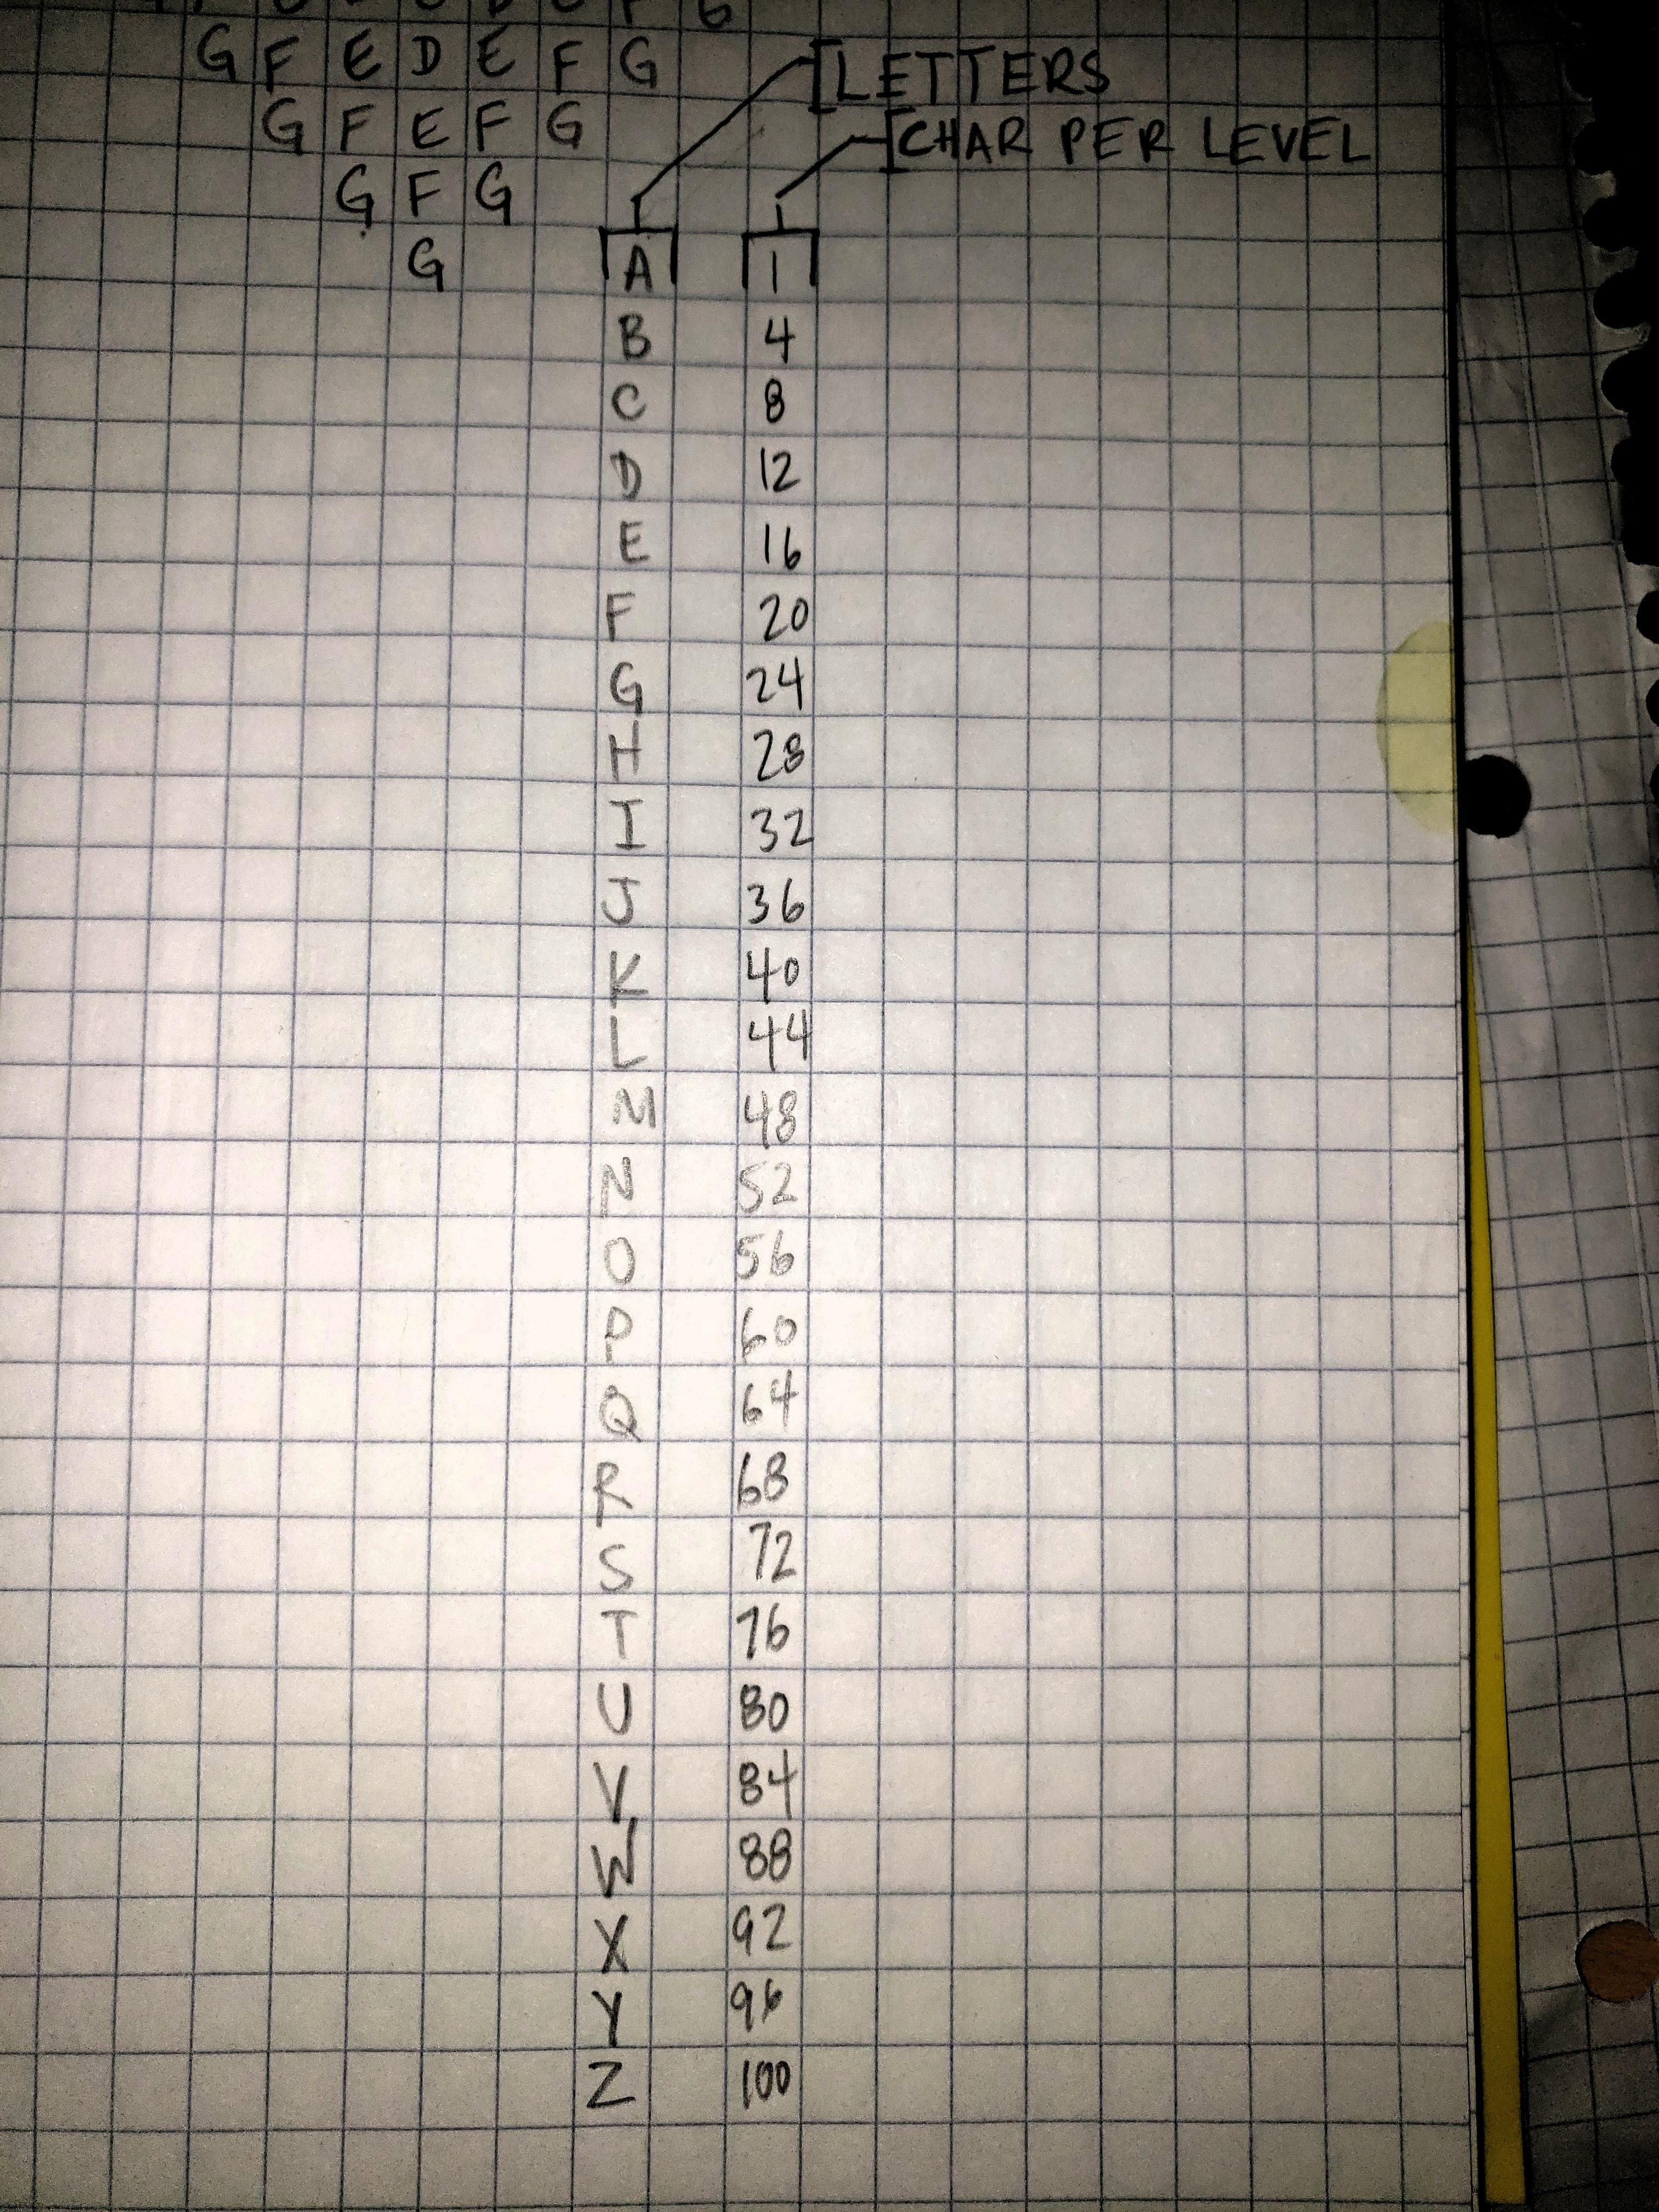 G F E D E F G
[LETTERS
G F E F G
[CHAR PER LEVEL
G F G
G
A 1
B 4
C 8
D 12
E 16
F 20
G 24
H 28
I 32
J 36
K 40
L 44
M 48
N 52
O 56
P 60
Q 64
R 68
S 72
T 76
U 80
V 84
W 88
X 92
Y 96
Z 100